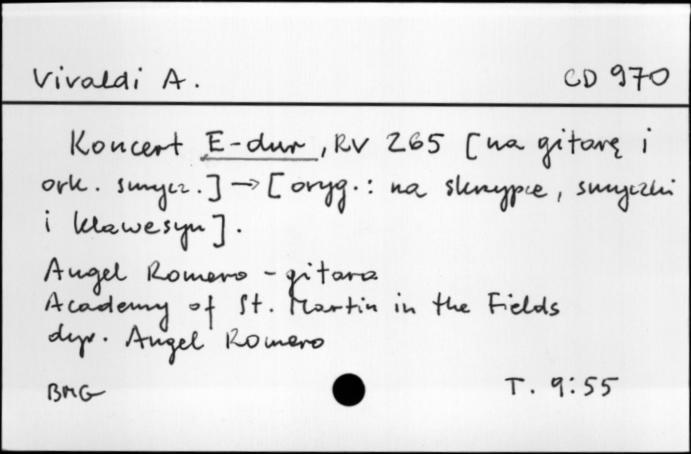 Vivaldi A. CD 970
Koncert E-dur, RV 265 [na gitarę i
ork. smycz.] → [oryg.: na skrzypce, smyczki
i klawesyn].
Angel Romero - gitara
Academy of St. Martin in the Fields
dyr. Angel Romero
BMG T. 9:55